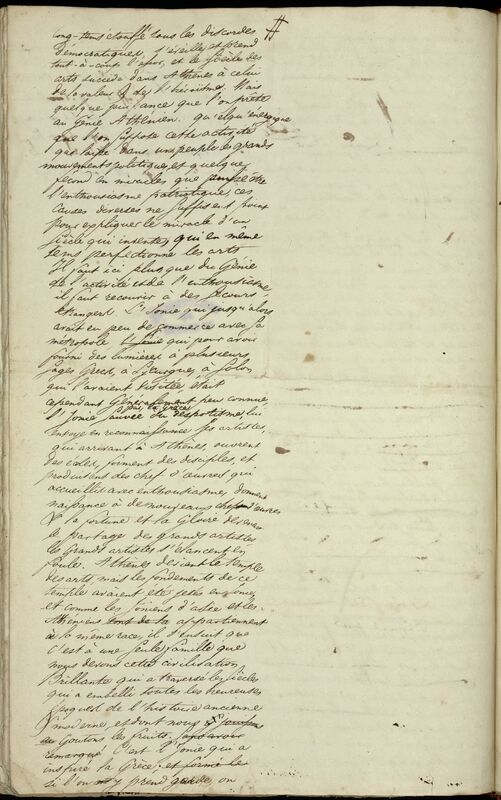 long-tems étouffé sous les discordes
démocratiques, s'éveille, et prend
tout-à-coup l'essor, et le siècle des
arts succède dans Athènes à celui
de la valeur & de l'héroisme. Mais
quelque puissance que l'on prête
au Génie Athénien, qu'elqu'énergique
que l'on suppose cette activité
que laisse dans un peuple les grands
mouvements politiques, et quelque
fécond en miracles que puisse être
l'enthousiasme patriotique, ces
causes diverses ne suffisent point
pour expliquer le miracle d'un
siècle qui invente, qui en même
tems perfectionne les arts
Il faut ici plus que du Génie
de l'activité et de l'enthousiasme
il faut recourir à des secours
étrangers. L'Ionie qui jusqu'alors
avait eu peu de commerce avec sa
métropole. L'Ionie qui pour avoir
fourni des lumières à plusieurs
sages Grecs, à Lycurgue, à Solon
qui l'avaient visitée, était
cependant Généralement peu connue
par la Grèce
l'Ionie sauvée du despotisme, lui
envoye en reconnaissance ses artistes,
qui arrivant à Athènes, ouvrent
des écoles, forment des disciples, et
produisent des chef d'œuvres qui
accueillis avec enthousiasme, donnent
naissance à de nouveaux chefs d'œuvres
& la fortune et la Gloire
le partage des grands artistes
les Grands artistes s'élancent en
foule. Athènes devient le temple
des arts, mais les fondements de ce
temple avaient été jetés en Ionie
et comme les Ioniens d'asie et les
Athéniens appartiennent
à la même race, il s'ensuit que
c'est à une seule famille que
nous devons cette civilisation
Brillante qui a traversé les siècles
qui a embelli toutes les heureuses
époques de l'histoire ancienne
& moderne, et dont nous
Goutons les fruits.
remarqué C'est l'Ionie qui a
inspiré la Grèce, et formé les
si l'on n'y prend garde, on